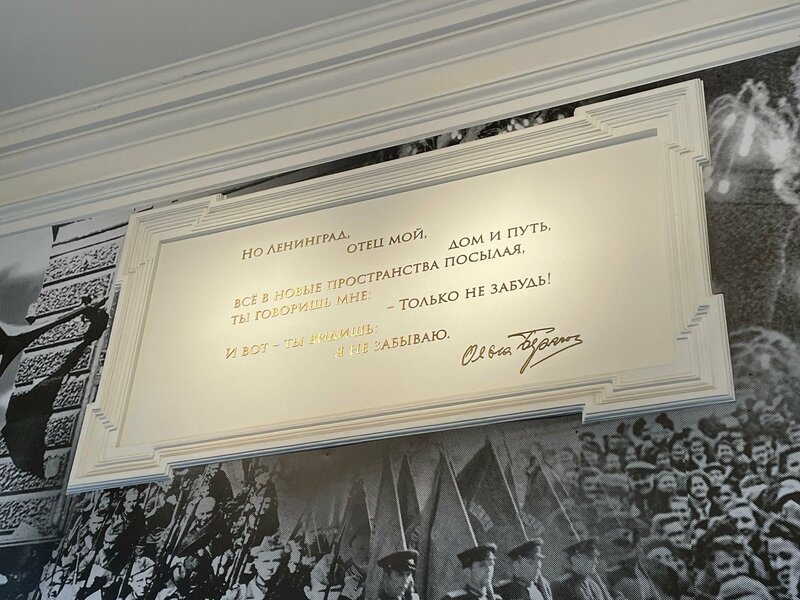 Но Ленинград,
отец мой,
дом и путь,
всё в новые пространства посылая,
ты говоришь мне:
– Только не забудь!
И вот – ты видишь:
я не забываю.
Ольга Берггольц